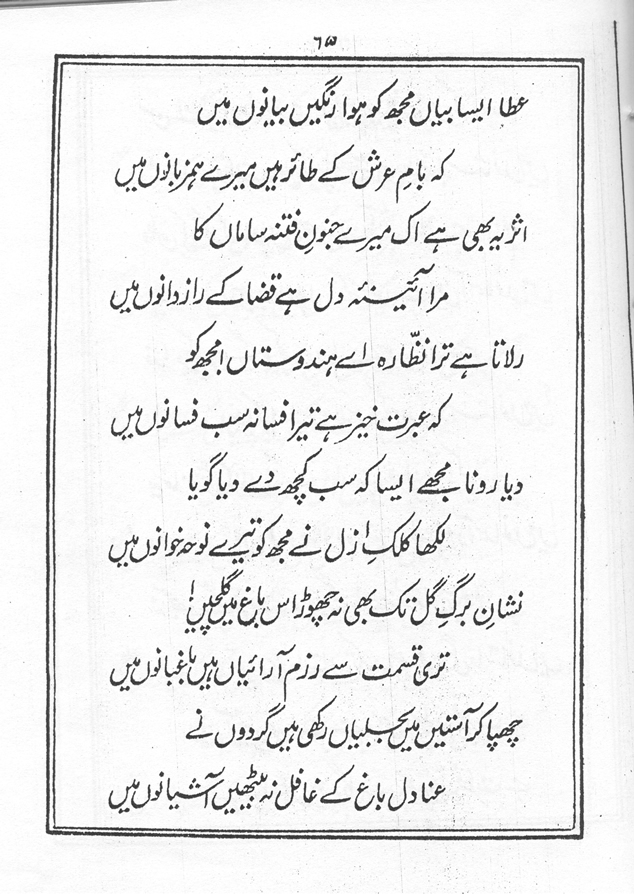 ۶۵
عطا ایسا بیاں مجھ کو ہوا رنگیں بیانوں میں
کہ بامِ عرش کے طائر ہیں میرے ہمزبانوں میں
اثر یہ بھی ہے اک میرے جنونِ فتنہ ساماں کا
مرا آئینۂ دل ہے قضا کے رازدانوں میں
رلاتا ہے ترا نظّارہ اے ہندوستاں! مجھ کو
کہ عبرت خیز ہے تیرا فسانہ سب فسانوں میں
دیا رونا مجھے ایسا کہ سب کچھ دے دیا گویا
لکھا کلکِ ازل نے مجھ کو تیرے نوحہ خوانوں میں
نشانِ برگِ گل تک بھی نہ چھوڑ اس باغ میں گلچیں!
تری قسمت سے رزم آرائیاں ہیں باغبانوں میں
چھپا کر آستیں میں بجلیاں رکھی ہیں گردوں نے
عنادل باغ کے غافل نہ بیٹھیں آشیانوں میں